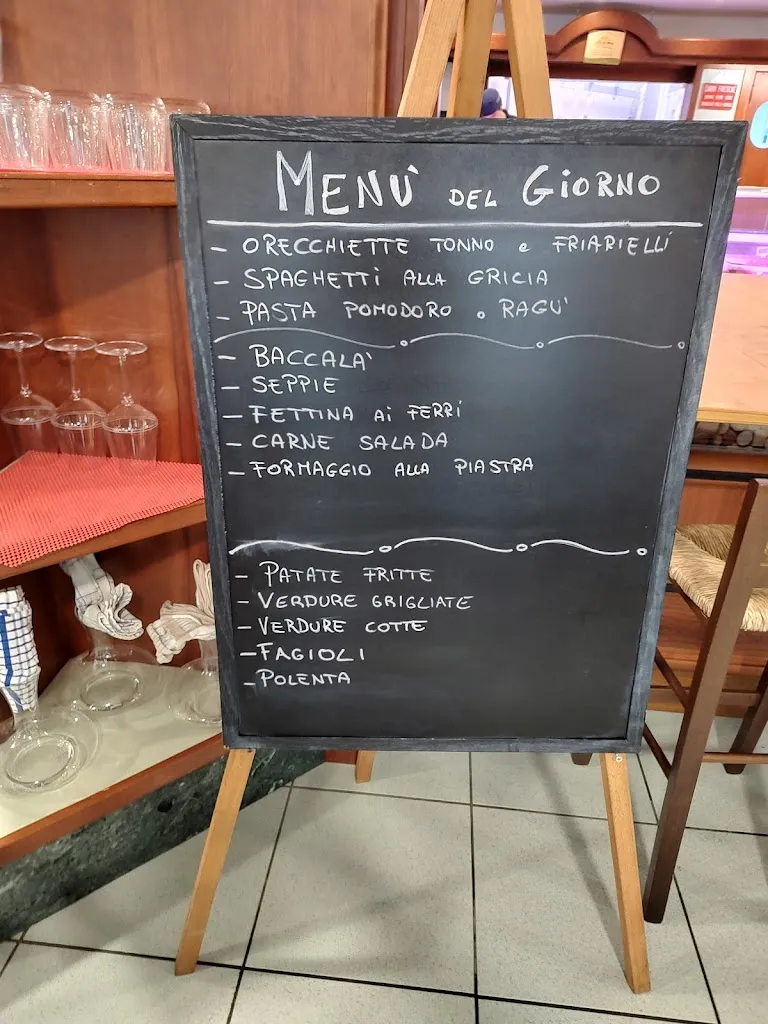 MENÙ DEL GIORNO
- ORECCHIETTE TONNO e FRIARIELLI
- SPAGHETTI ALLA GRICIA
- PASTA POMODORO o RAGU'
- BACCALA'
- SEPPIE
- FETTINA AI FERRI
- CARNE SALADA
- FORMAGGIO ALLA PIASTRA
- PATATE FRITTE
- VERDURE GRIGLIATE
- VERDURE COTTE
- FAGIOLI
- POLENTA